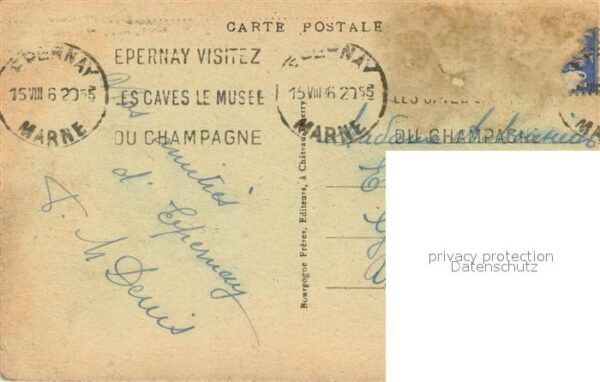 CARTE POSTALE
EPERNAY
15 VIII 6 20 55
MARNE
EPERNAY VISITEZ
LES CAVES LE MUSEE
DU CHAMPAGNE
EPERNAY
15 VIII 6 20 55
MARNE
LES CAVES
DU CHAMPAGNE
amitiés
d'Epernay
M Denis
Madame
Bourgogne Frères, Editeurs, à Château-Thierry
privacy protection
Datenschutz